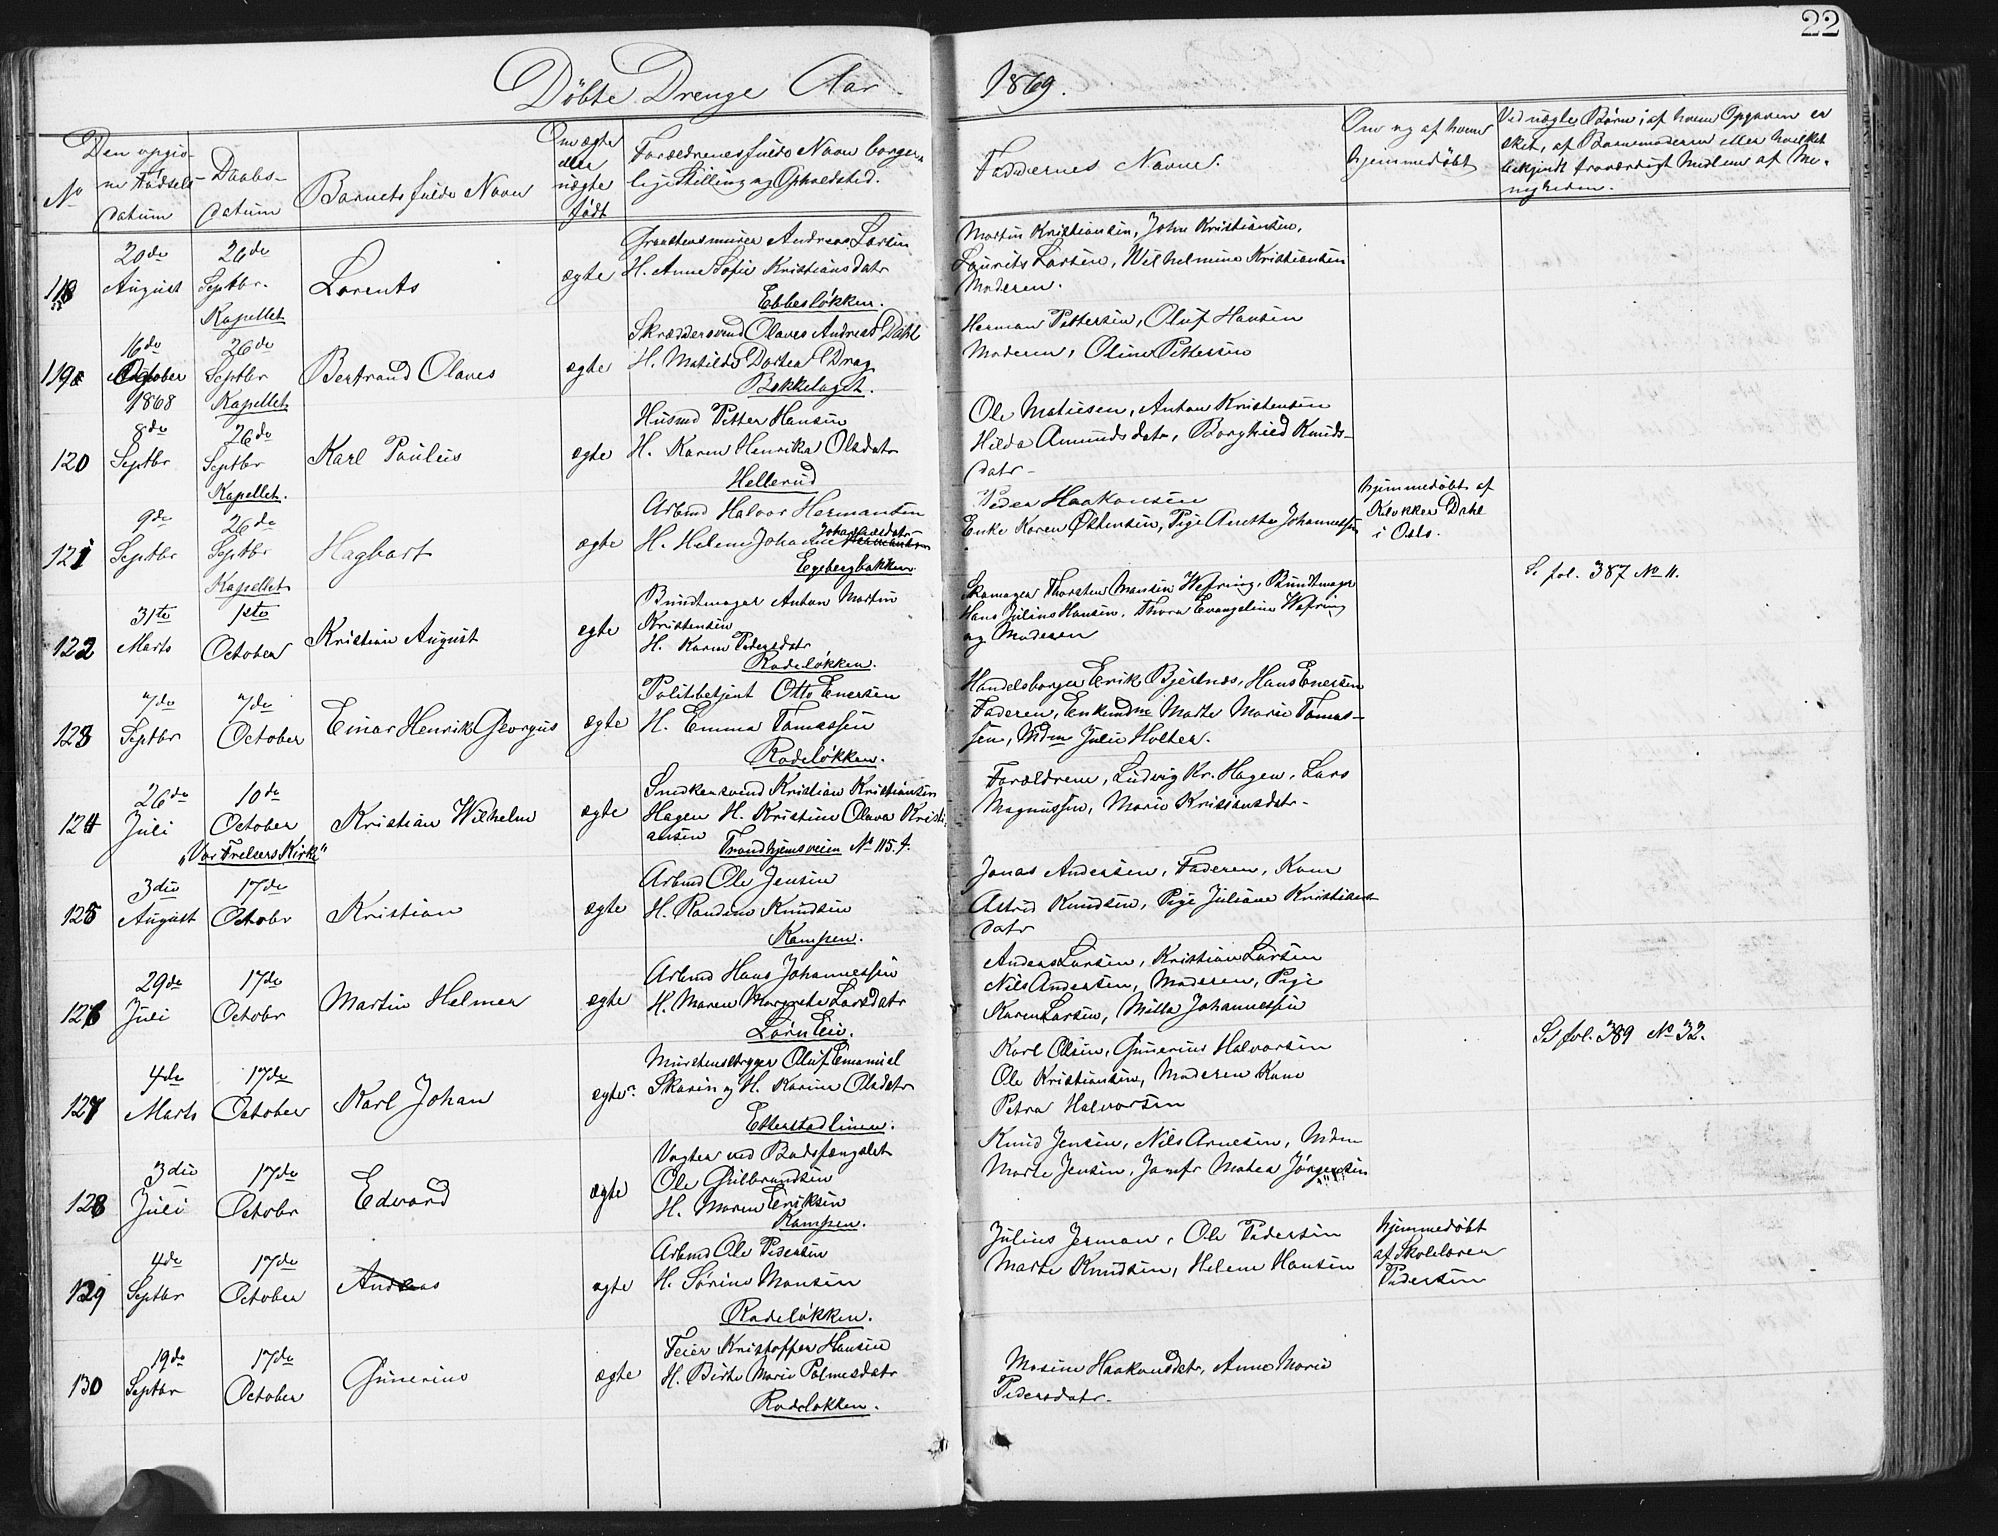 22
Döbte Drenge Aar 1869.
No
Den opgiv-
ne Födsels-
datum
Daabs-
datum
Barnets fulde Navn
Om ægte
eller
uægte
födt
Forældrenes fulde Navn borger-
lige Stilling og Opholdsted.
Faddernes Navne.
Om og af hvem
hjemmedöbt
Ved uægte Börn; af hvem Opgaven er
sket, af Barnemoderen eller hvilket
bekjendt troværdigt Medlem af Me-
nigheden.
118
20de
August
26de
Septbr.
Kapellet
Lorents
ægte
Graastensmurer Andreas Larsen
H. Anne Sofie Kristiansdatr
Ebbesløkken.
Martin Kristiansen, John Kristiansen,
Laurits Larsen, Wilhelmine Kristiansen
Moderen.
119
16de
October
1868
26de
Septbr
Kapellet
Bertrand Olaves
ægte
Skræddersvend Olaves Andreas Dahl
H. Matilde Dortea Drag
Bækkelaget.
Herman Pettersen, Oluf Hansen
Moderen, Oline Pettersen
120
8de
Septbr
26de
Septbr
Kapellet.
Karl Paulus
ægte
Husmd Petter Hansen
H. Karen Henrikke Olsdatr
Hellerud
Ole Matiesen, Anton Kristensen
Hilda Amundsdatr, Borghild Knuds-
datr
121
9de
Septbr
26de
Septbr
Kapellet
Hagbart
ægte
Arbmd Halvor Hermansen
H. Helene Johanne Johannesdatr
Egebergbakken
Peder Haakonsen
Enke Karen Østensen, Pige Anette Johannessen
hjemmedöbt af
Klokker Dahl
i Oslo.
122
31te
Marts
1ste
October
Kristian August
ægte
Bundtmager Anton Martin
Kristensen
H. Karen Pedersdatr
Rodeløkken.
Skomager Thorsten Monsen Wefring, Bundtmager
Hans Julius Hansen, Thora Evangeline Wefring
og Moderen
S. fol. 387 No 11.
123
7de
Septbr
7de
October
Einar Henrik Georgus
ægte
Politibetjent Otto Enersen
H. Emma Tomassen
Rodeløkken.
Handelsborger Erik Bjerknes, Hans Enersen
Faderen, Enkemdme Marte Marie Tomas-
sen, Mdm Julie Holter.
124
26de
Juli
10de
October
"Vor Frelsers Kirke"
Kristian Wilhelm
ægte
Snedkersvend Kristian Kristiansen
Hagen H. Kristine Olava Kristi-
ansen
Trondhjemsveien No 115.f.
Forældrene, Ludvig Kr. Hagen, Lars
Magnussen, Marie Kristiansdatr.
125
3die
August
17de
Octobr
Kristian
ægte
Arbmd Ole Jensen
H. Randine Knudsen
Kampen.
Jonas Andersen, Faderen, Kone
Astrid Knudsen, Pige Juliane Kristians
datr
126
29de
Juli
17de
Octobr
Martin Helmer
ægte
Arbmd Hans Johannessen
H. Maren Margrete Larsdatr
Lørn Eie.
Anders Larsen, Kristian Larsen
Nils Andersen, Moderen, Pige
Karen Larsen, Milla Johannessen
127
4de
Marts
17de
October
Karl Johan
ægte
Murstensstryger Oluf Emanuel
Skarin og H. Karine Olsdatr
Etterstadlinien.
Karl Olsen, Gunerius Halvorsen
Ole Kristiansen, Moderen Kone
Petra Halvorsen
Se fol. 389 No 32.
128
3die
Juli
17de
Octobr
Edward
ægte
Vogter ved Bodsfængslet
Ole Gulbrandsen
H. Maren Eriksen
Kampen.
Knud Jensen, Nils Arnesen, Mdm
Marte Jensen, Jomfr Matea Jörgensen
129
4de
Septbr
17de
October
Andreas
ægte
Arbmd Ole Pedersen
H. Sörine Monsen
Rodeløkken.
Julius Jerman, Ole Pedersen
Marte Knudsen, Helene Hansen
hjemmedöbt
af Skolelærer
Pedersen
130
19de
Septbr
17de
October
Gunerius
ægte
Feier Kristoffer Hansen
H. Birte Marie Palmesdatr
Rodeløkken.
Mosine Haakonsdatr, Anne Marie
Pedersdatr.